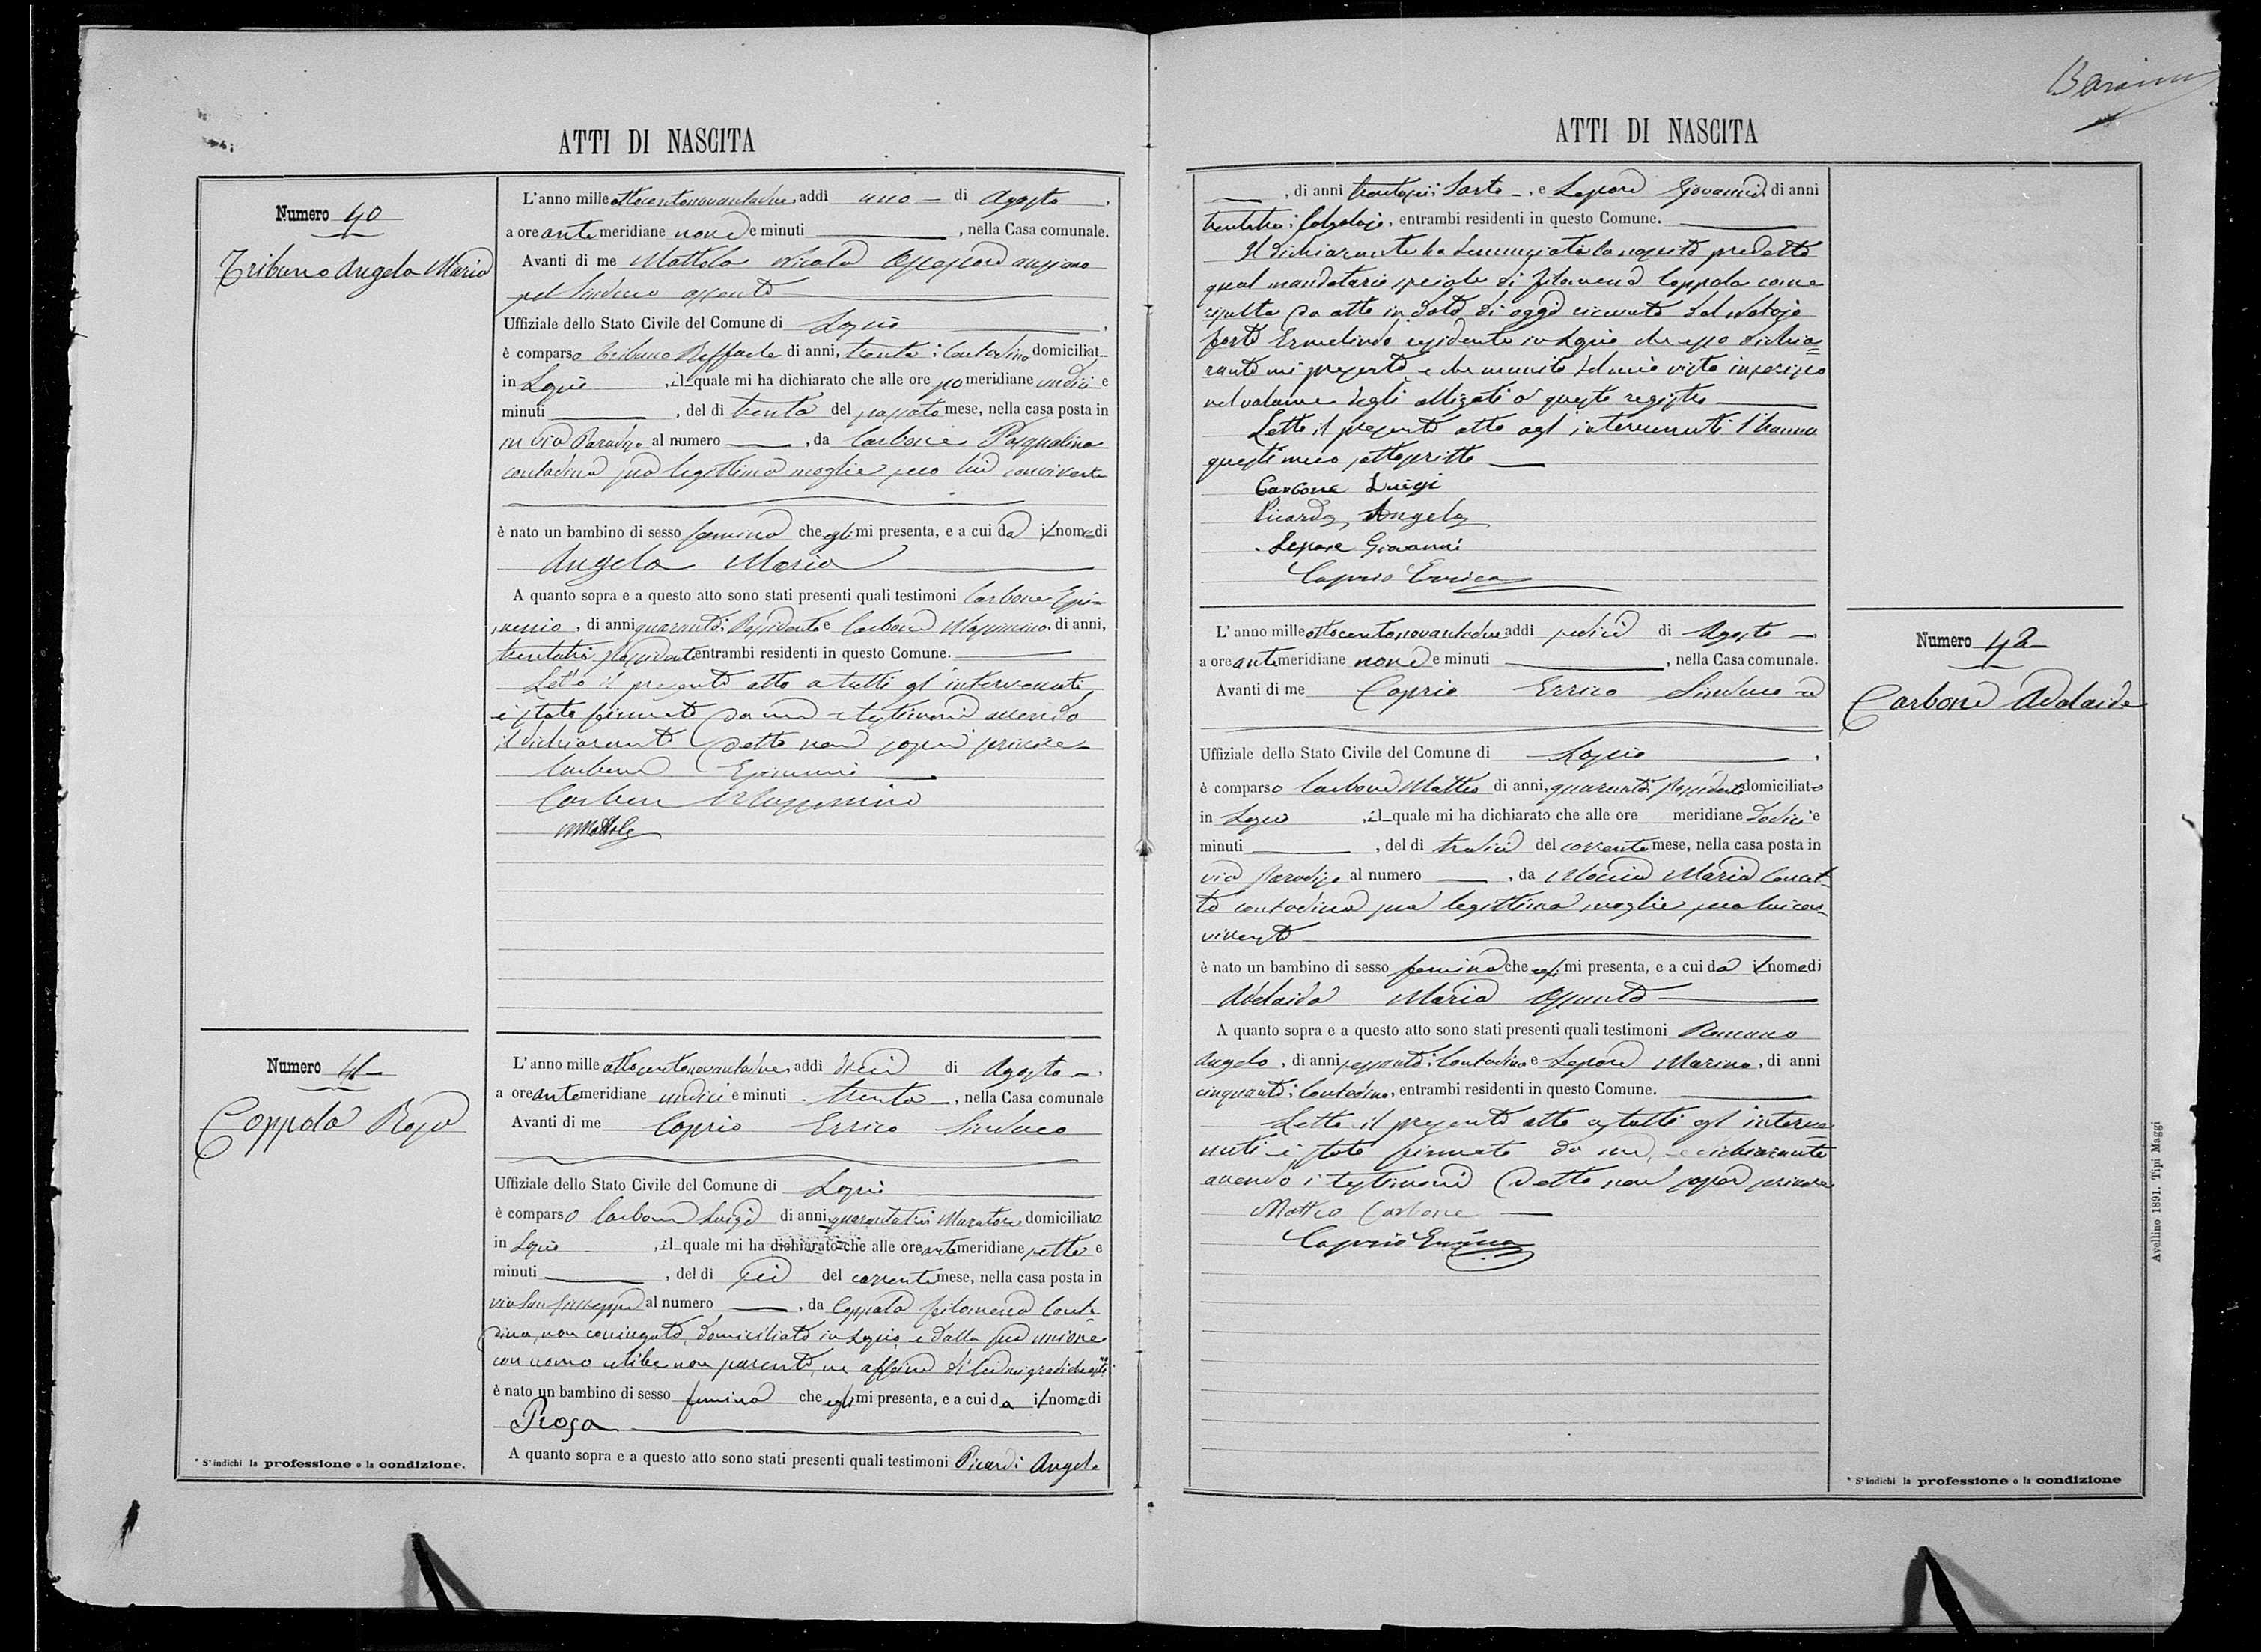 Barāmu
ATTI DI NASCITA
Numero 40
Tribuno Angela Maria
L'anno mille ottocentonovantadue, addì uno di Agosto,
a ore antemeridiane nove e minuti , nella Casa comunale.
Avanti di me Mattola Nicola Assessore anziano
pel Sindaco assente
Uffiziale dello Stato Civile del Comune di Lapio,
è comparso Tribuno Raffaele di anni, trenta; Contadino domiciliat
in Lapio, il quale mi ha dichiarato che alle ore pomeridiane undici e
minuti , del dì trenta del passato mese, nella casa posta in
in via Paradiso al numero , da Carbone Pasqualina
contadina sua legittima moglie, seco lui convivente
è nato un bambino di sesso femina che egli mi presenta, e a cui da il nome di
Angela Maria
A quanto sopra e a questo atto sono stati presenti quali testimoni Carbone Epi-
menio, di anni quaranta; Possidente e Carbone Massimino, di anni,
trentatre possidente entrambi residenti in questo Comune.
Letto il presente atto a tutti gl'intervenuti,
è stato firmato da me e testimoni avendo
il dichiarante detto non saper scrivere
Carbone Epimenio
Carbone Massimino
NMattola
Numero 41
Coppola Rosa
L'anno mille ottocentonovantadue, addì dieci di Agosto,
a ore antemeridiane undici e minuti trenta, nella Casa comunale
Avanti di me Caprio Errico Sindaco
Uffiziale dello Stato Civile del Comune di Lapio
è comparso Carbone Luigi di anni, quarantatre Muratore domiciliato
in Lapio, il quale mi ha dichiarato che alle ore antemeridiane sette e
minuti , del dì sei del corrente mese, nella casa posta in
via San Giuseppe al numero , da Coppola Filomena Conta-
dina, non coniugata, domiciliata in Lapio, e dalla sua unione
con uomo celibe non parente, ne affine di lei nei gradi che
è nato un bambino di sesso femina che egli mi presenta, e a cui da il nome di
Rosa
A quanto sopra e a questo atto sono stati presenti quali testimoni Picardi Angelo
* S'indichi la professione o la condizione.
ATTI DI NASCITA
, di anni trentasei; Sarto, e Lepore Giovanni, di anni
trentatre; Calzolajo, entrambi residenti in questo Comune.
Il dichiarante ha denunziata la nascita predetta
qual mandatario speciale di Filomena Coppola come
risulta da atto in data di oggi ricevuto dal Notajo
Forte Ermelindo residente in Lapio che esso dichia-
rante mi presenta e che munito del mio visto inserisco
nel volume degli allegati a questo registro
Letto il presente atto agl'intervenuti l'hanno
questi meco sottoscritto
Carbone Luigi
Picardi Angelo
Lepore Giovanni
Caprio Errico
Numero 42
Carbone Adelaide
L'anno mille ottocentonovantadue addì sedici di Agosto
a ore antemeridiane nove e minuti , nella Casa comunale.
Avanti di me Caprio Errico Sindaco
Uffiziale dello Stato Civile del Comune di Lapio,
è comparso Carbone Matteo di anni, quaranta; possidente domiciliato
in Lapio, il quale mi ha dichiarato che alle ore meridiane dodici e
minuti , del dì tredici del corrente mese, nella casa posta in
via Paradiso al numero , da Moccia Maria Concet-
ta contadina sua legittima moglie, seco lui con-
vivente
è nato un bambino di sesso femina che egli mi presenta, e a cui da il nome di
Adelaide Maria Assunta
A quanto sopra e a questo atto sono stati presenti quali testimoni Romano
Angelo, di anni sessanta; Contadino e Lepore Marino, di anni
cinquanta; Contadino, entrambi residenti in questo Comune.
Letto il presente atto a tutti gl'interve-
nuti è stato firmato da me, e dichiarante
avendo i testimoni detto non saper scrivere
Matteo Carbone
Caprio Errico
* S'indichi la professione o la condizione
Avellino 1891. Tipi Maggi